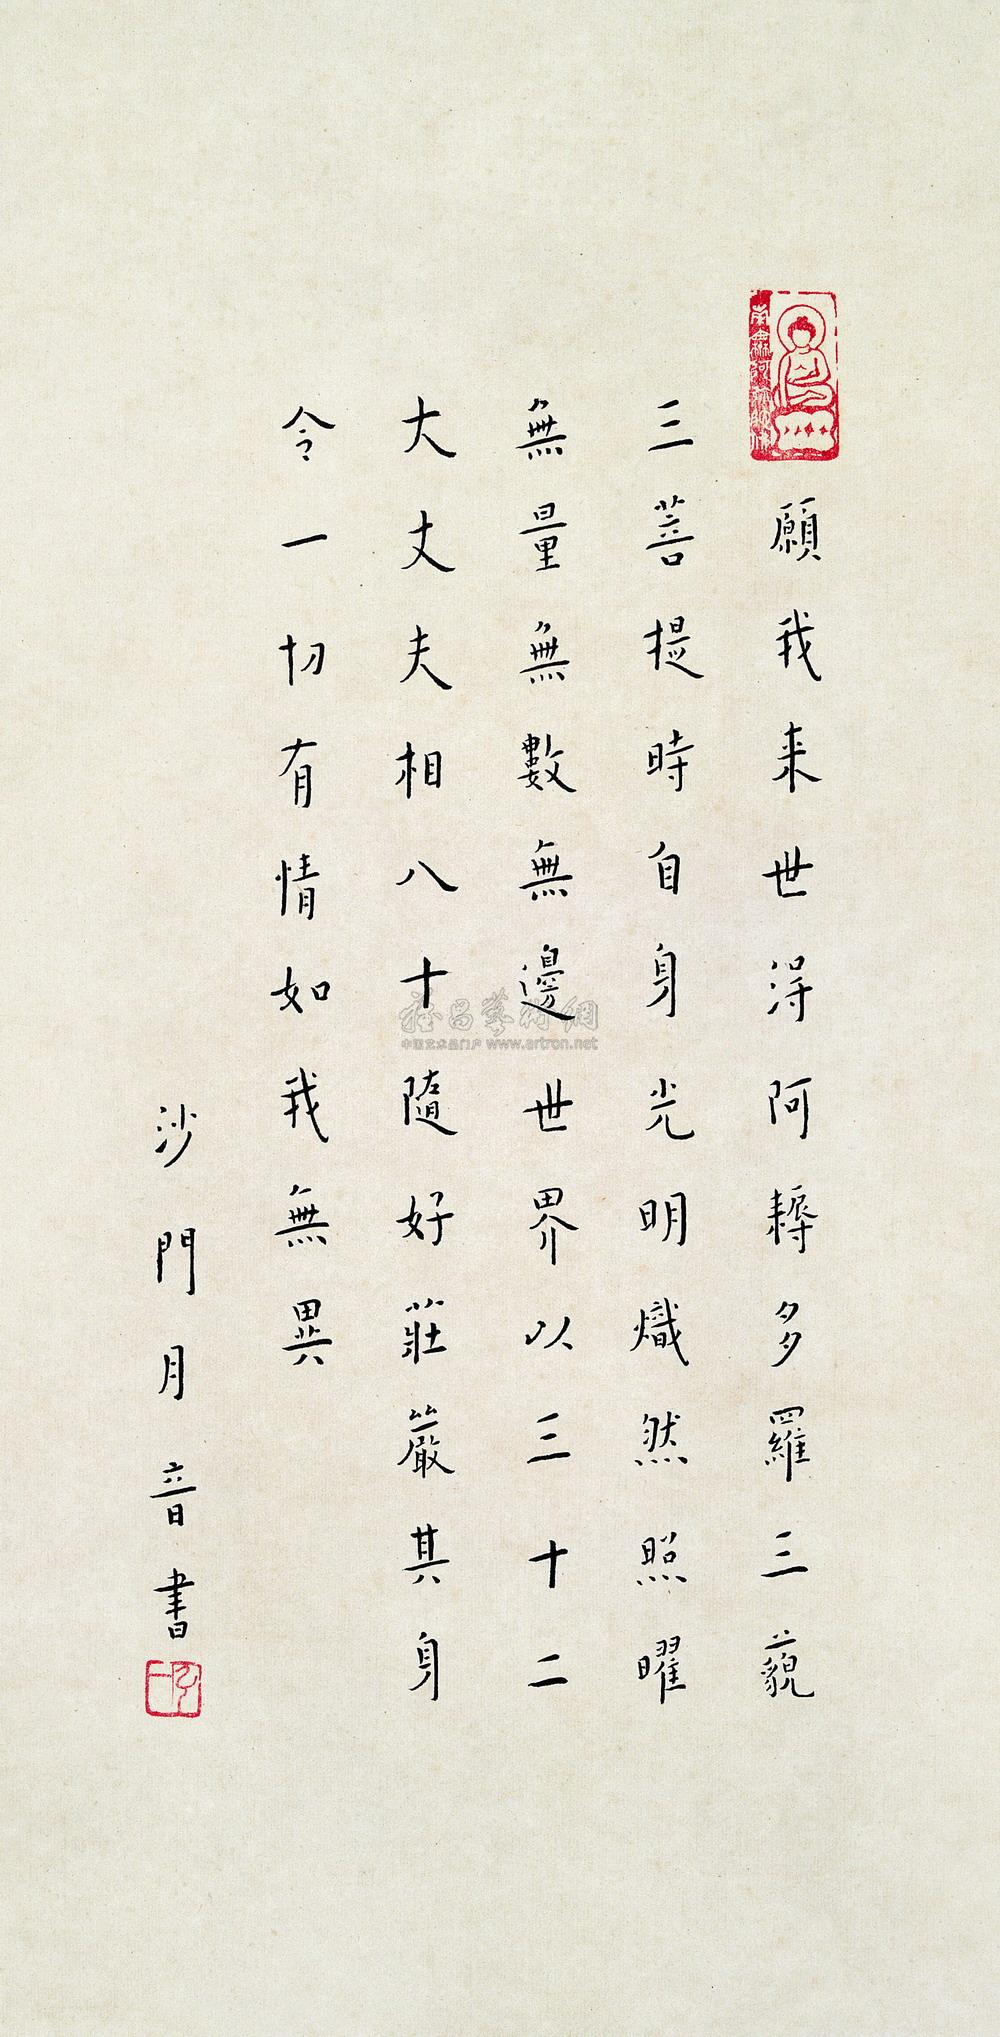 願我来世得阿耨多羅三藐
三菩提時自身光明熾然照曜
無量無數無邊世界以三十二
大丈夫相八十隨好莊嚴其身
令一切有情如我無異
沙門月音書
雅昌藝術網
中国艺术品门户 www.artron.net